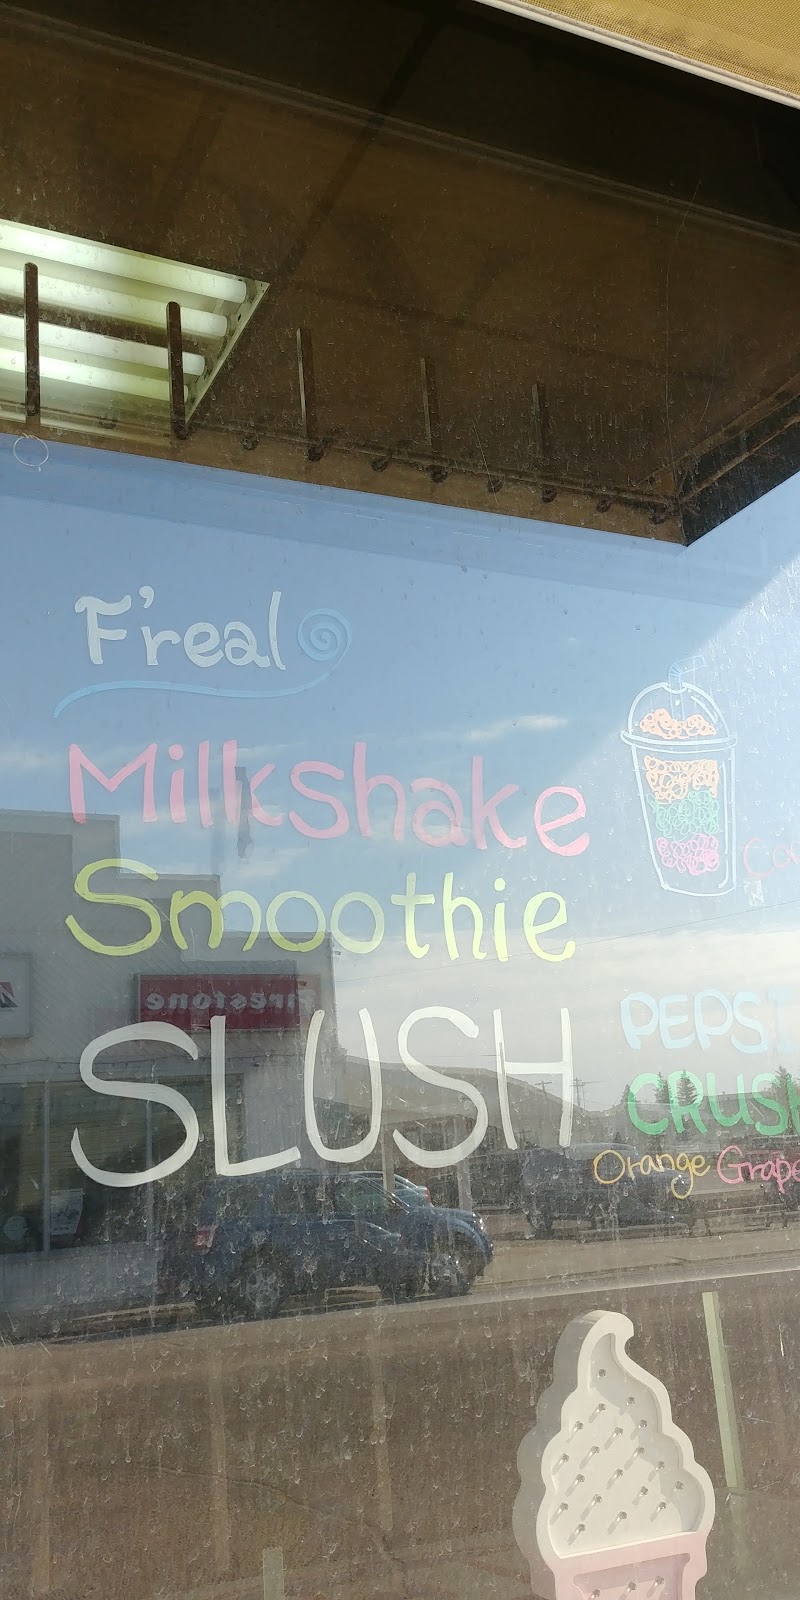 F'real
Milkshake
Smoothie
SLUSH
PEPSI
CRUSH
Orange Grape
Firestone